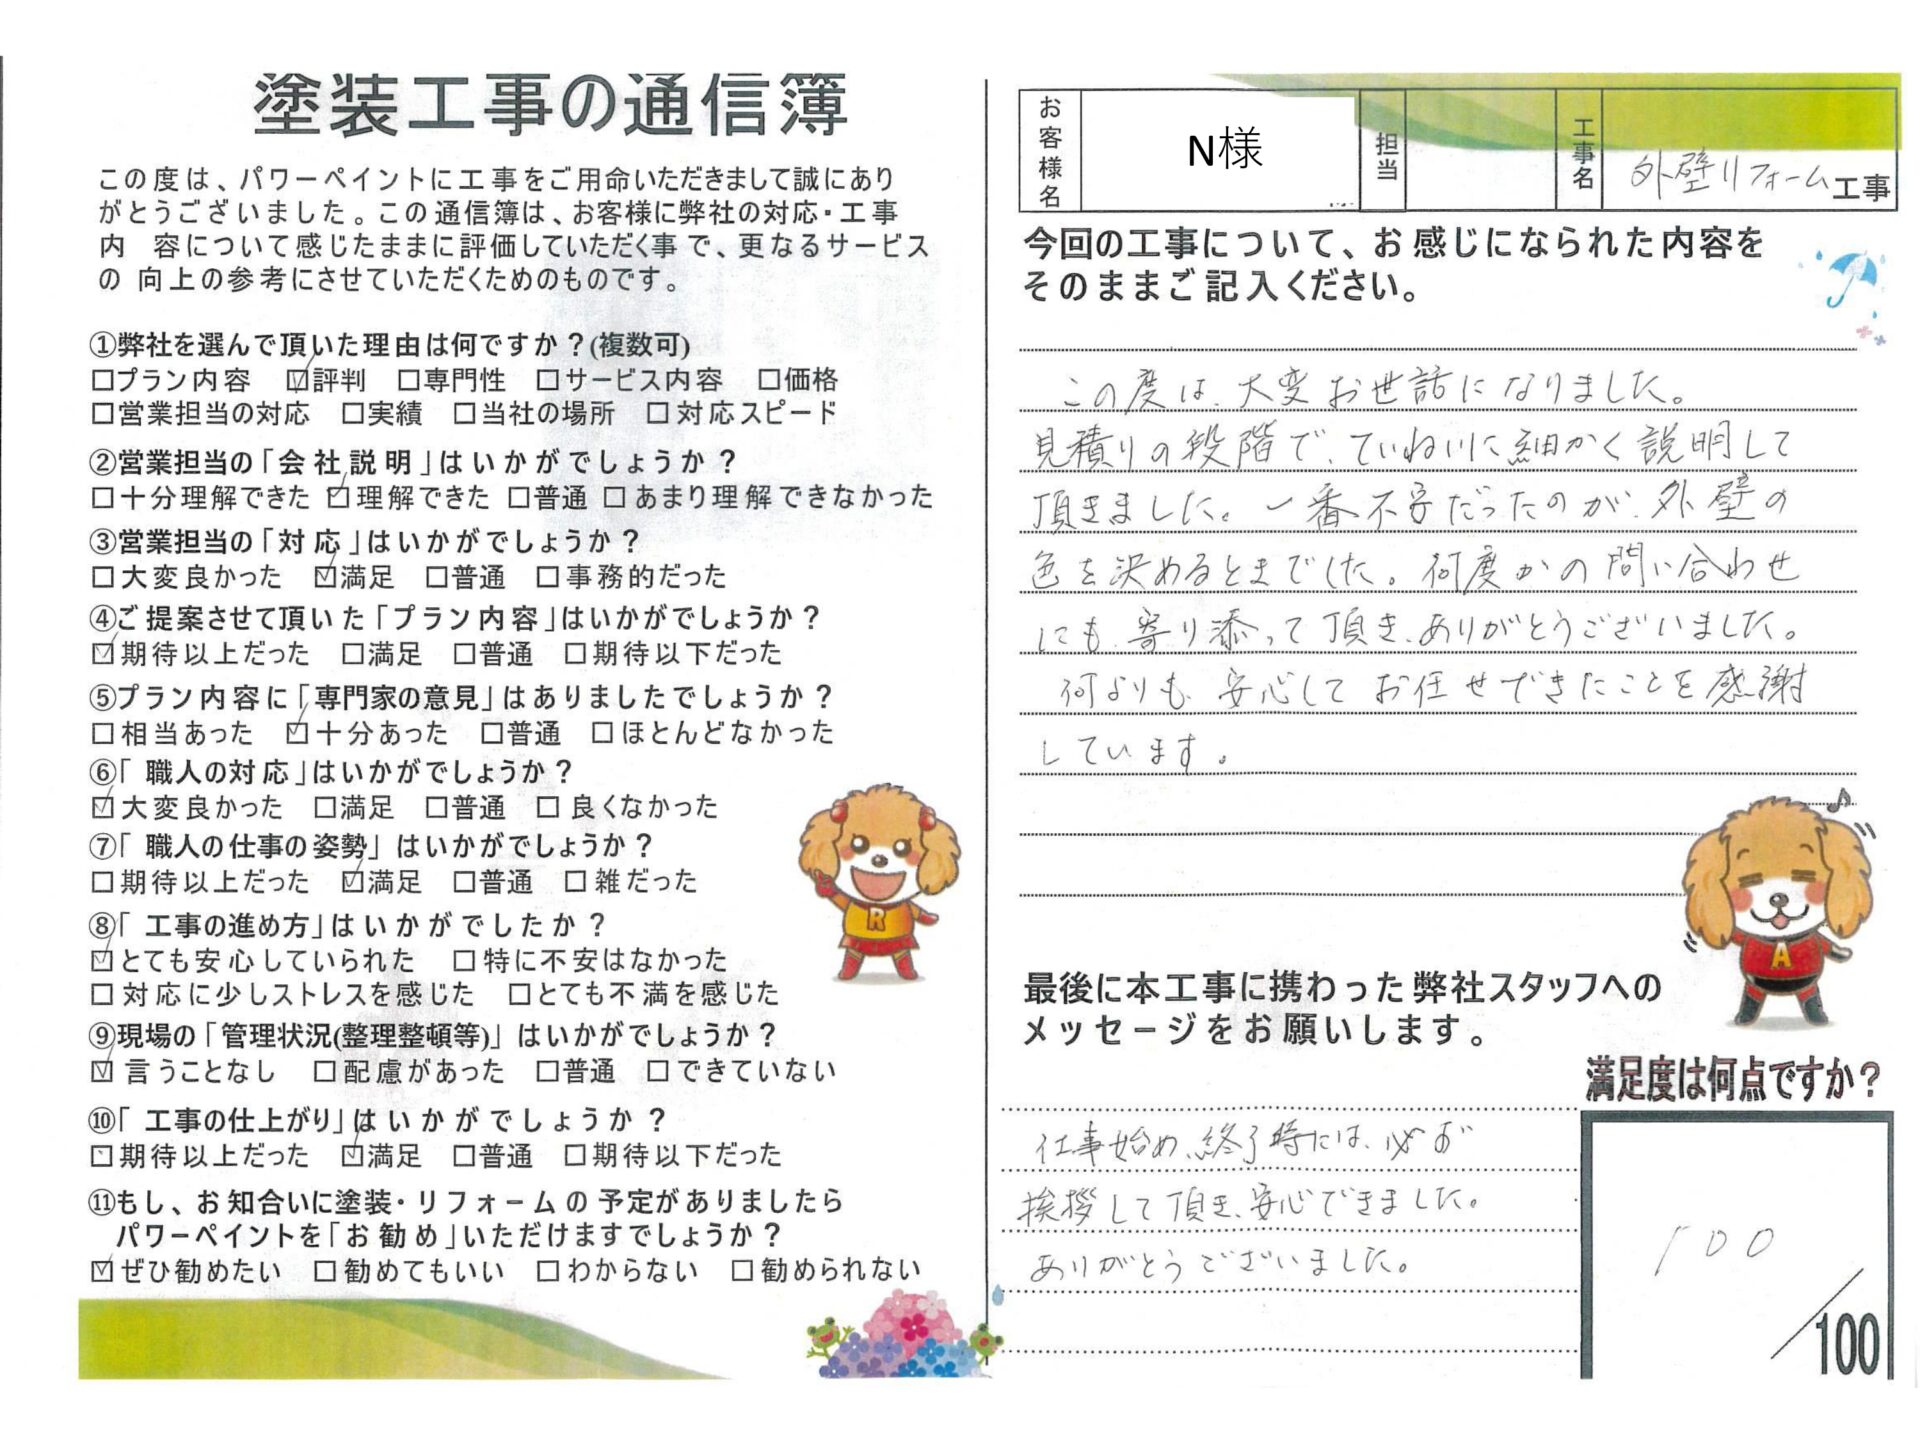 塗装工事の通信簿
この度は、パワーペイントに工事をご用命いただきまして誠にあり
がとうございました。この通信簿は、お客様に弊社の対応・工事
内　容について感じたままに評価していただく事で、更なるサービス
の 向上の参考にさせていただくためのものです。
①弊社を選んで頂いた理由は何ですか？(複数可)
□プラン内容　☑評判　□専門性　□サービス内容　□価格
□営業担当の対応　□実績　□当社の場所　□対応スピード
②営業担当の「会社説明」はいかがでしょうか？
□十分理解できた ☑理解できた □普通 □あまり理解できなかった
③営業担当の「対応」はいかがでしょうか？
□大変良かった　☑満足　□普通　□事務的だった
④ご提案させて頂いた「プラン内容」はいかがでしょうか？
☑期待以上だった　□満足　□普通　□期待以下だった
⑤プラン内容に「専門家の意見」はありましたでしょうか？
□相当あった　☑十分あった　□普通　□ほとんどなかった
⑥「 職人の対応」はいかがでしょうか？
☑大変良かった　□満足　□普通　□ 良くなかった
⑦「 職人の仕事の姿勢」 はいかがでしょうか？
□期待以上だった　☑満足　□普通　□ 雑だった
⑧「 工事の進め方」はいかがでしたか？
☑とても安心していられた　□特に不安はなかった
□対応に少しストレスを感じた　□とても不満を感じた
⑨現場の「管理状況(整理整頓等)」はいかがでしょうか？
☑ 言うことなし　□配慮があった　□普通　□できていない
⑩「 工事の仕上がり」はいかがでしょうか？
□期待以上だった　☑満足　□普通　□期待以下だった
⑪もし、お知合いに塗装・リフォームの予定がありましたら
パワーペイントを「お勧め」いただけますでしょうか？
☑ぜひ勧めたい　□勧めてもいい　□わからない　□勧められない
R
お客様名　N様　担当　工事名　外壁リフォーム工事
今回の工事について、お感じになられた内容を
そのままご記入ください。
この度は、大変お世話になりました。
見積りの段階で、ていねいに細かく説明して
頂きました。一番不安だったのが、外壁の
色を決めるとまでした。何度かの問い合わせ
にも、寄り添って頂き、ありがとうございました。
何よりも、安心してお任せできたことを感謝
しています。
A
最後に本工事に携わった弊社スタッフへの
メッセージをお願いします。
仕事始め、終了時には、必ず
挨拶して頂き、安心できました。
ありがとうございました。
満足度は何点ですか？
100
/100